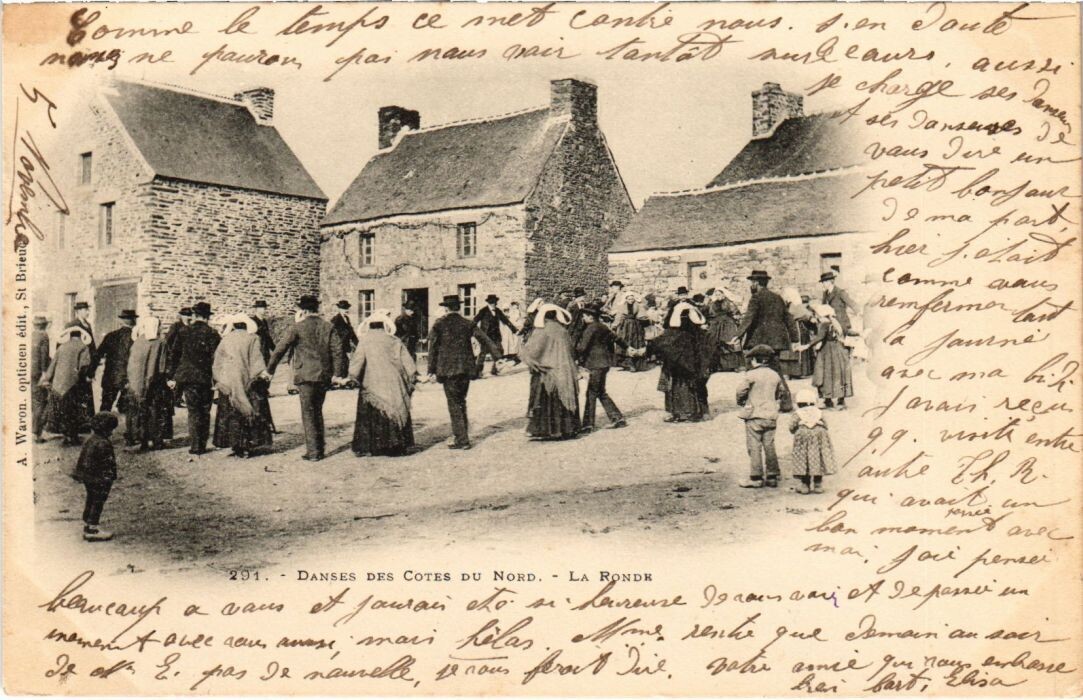 Comme le temps ce met contre nous. s'en doute
nous ne pouvons pas nous voir tantôt sur le cours, aussi
je charge ses danseurs
et ses danseuses de
vous dire un
petit bonjour
de ma part,
hier j'était
comme vous
renfermer tout
la journé
avec ma bibi
j'avais reçus
qq. visite entre
autre Th. R.
qui avait un
bon moment avec
moi. j'ai penser
beaucoup a vous et j'aurais été si heureuse de vous voir et de passer un
moment avec vous aussi, mais hélas. Mme rentre que demain au soir
de E. pas de nouvelle, je vous ferait dire. Votre amie qui vous embrasse
bien fort, Elisa
5 Novembre
A. Waron. opticien édit., St Brieuc
291. - DANSES DES COTES DU NORD. - LA RONDE